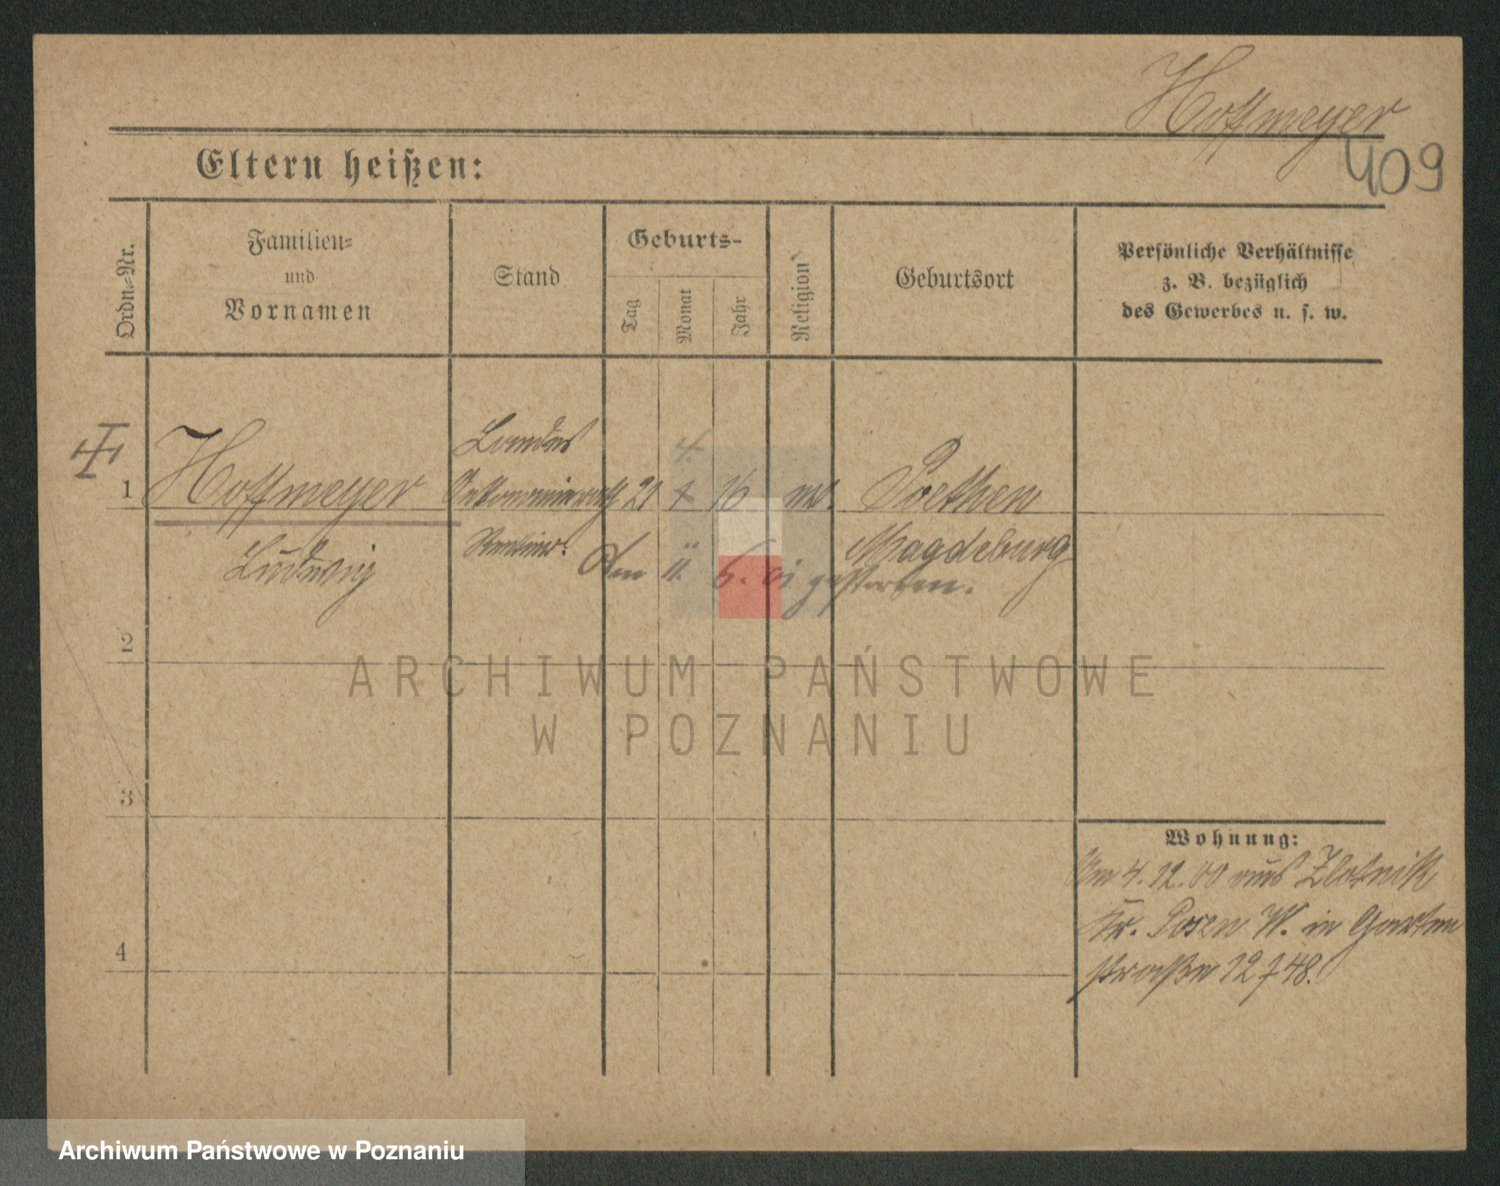 Hoffmeyer
409
Eltern heißen:
Ordn.-Nr.
Familien-
und
Vornamen
Stand
Geburts-
Tag
Monat
Jahr
Religion
Geburtsort
Persönliche Verhältnisse
z. B. bezüglich
des Gewerbes u. s. w.
Landes
4.
1 Hoffmeyer Oekonomierath 21 16 Poethen
Ludwig Rentier. Magdeburg
Am 11. 6. 01 gestorben.
2
3
4
Wohnung:
Am 4.12.00 aus Zlotnik
Kr. Posen W. in Garten
straße 12 748.
ARCHIWUM PAŃSTWOWE
W POZNANIU
Archiwum Państwowe w Poznaniu